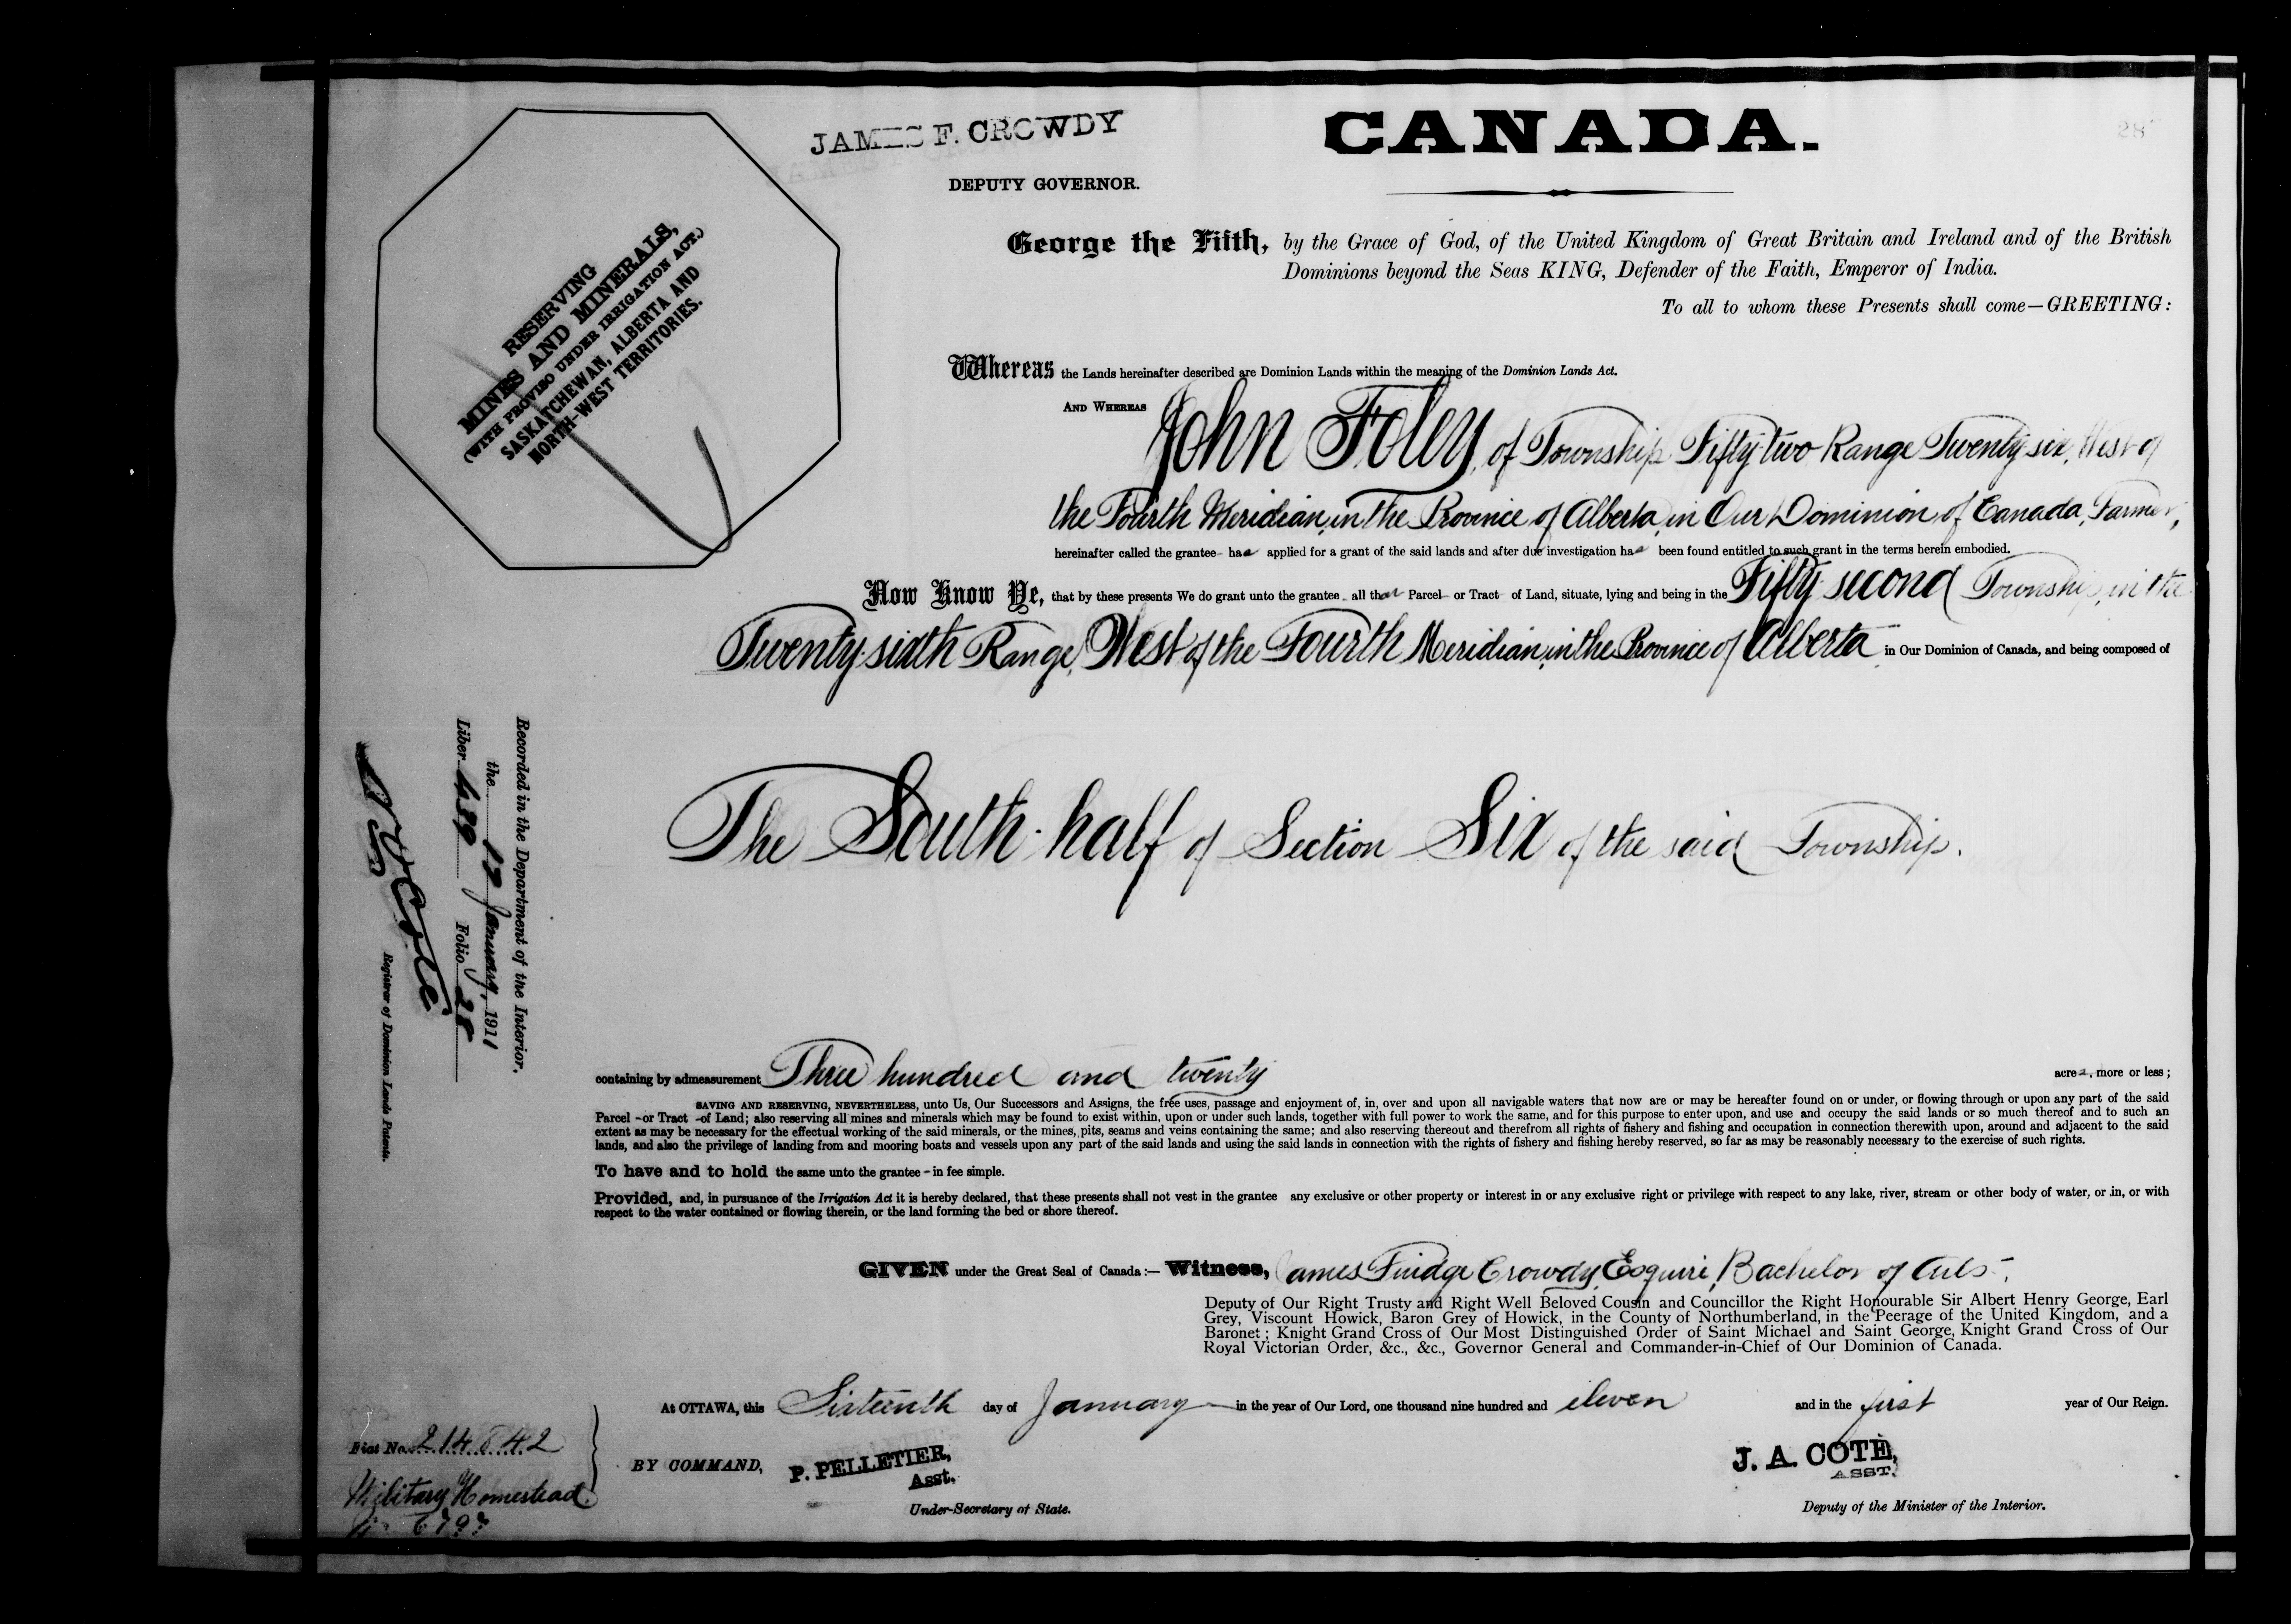 JAMES F. CROWDY
DEPUTY GOVERNOR.
CANADA.
28
RESERVING
MINES AND MINERALS,
(WITH PROVISO UNDER IRRIGATION ACT.)
SASKATCHEWAN, ALBERTA AND
NORTH-WEST TERRITORIES.
George the Fifth, by the Grace of God, of the United Kingdom of Great Britain and Ireland and of the British
Dominions beyond the Seas KING, Defender of the Faith, Emperor of India.
To all to whom these Presents shall come—GREETING:
Whereas the Lands hereinafter described are Dominion Lands within the meaning of the Dominion Lands Act.
AND WHEREAS John Foley, of Township Fifty-two Range Twenty-six, West of
the Fourth Meridian, in the Province of Alberta, in Our Dominion of Canada, Farmer,
hereinafter called the grantee has applied for a grant of the said lands and after due investigation has been found entitled to such grant in the terms herein embodied.
Now Know Ye, that by these presents We do grant unto the grantee all that Parcel or Tract of Land, situate, lying and being in the Fifty-second Township, in the
Twenty-sixth Range, West of the Fourth Meridian, in the Province of Alberta in Our Dominion of Canada, and being composed of
The South-half of Section Six of the said Township.
Recorded in the Department of the Interior,
the 17 January, 1911
Liber 489 Folio 28
Registrar of Dominion Lands Patents.
containing by admeasurement Three hundred and twenty acres, more or less;
SAVING AND RESERVING, NEVERTHELESS, unto Us, Our Successors and Assigns, the free uses, passage and enjoyment of, in, over and upon all navigable waters that now are or may be hereafter found on or under, or flowing through or upon any part of the said
Parcel - or Tract - of Land; also reserving all mines and minerals which may be found to exist within, upon or under such lands, together with full power to work the same, and for this purpose to enter upon, and use and occupy the said lands or so much thereof and to such an
extent as may be necessary for the effectual working of the said minerals, or the mines, pits, seams and veins containing the same; and also reserving thereout and therefrom all rights of fishery and fishing and occupation in connection therewith upon, around and adjacent to the said
lands, and also the privilege of landing from and mooring boats and vessels upon any part of the said lands and using the said lands in connection with the rights of fishery and fishing hereby reserved, so far as may be reasonably necessary to the exercise of such rights.
To have and to hold the same unto the grantee - in fee simple.
Provided, and, in pursuance of the Irrigation Act it is hereby declared, that these presents shall not vest in the grantee any exclusive or other property or interest in or any exclusive right or privilege with respect to any lake, river, stream or other body of water, or in, or with
respect to the water contained or flowing therein, or the land forming the bed or shore thereof.
GIVEN under the Great Seal of Canada:— Witness, James Fuidge Crowdy, Esquire, Bachelor of Arts,
Deputy of Our Right Trusty and Right Well Beloved Cousin and Councillor the Right Honourable Sir Albert Henry George, Earl
Grey, Viscount Howick, Baron Grey of Howick, in the County of Northumberland, in the Peerage of the United Kingdom, and a
Baronet; Knight Grand Cross of Our Most Distinguished Order of Saint Michael and Saint George, Knight Grand Cross of Our
Royal Victorian Order, &c., &c., Governor General and Commander-in-Chief of Our Dominion of Canada.
At OTTAWA, this Sixteenth day of January in the year of Our Lord, one thousand nine hundred and eleven and in the first year of Our Reign.
Fiat No. 214842
Military Homestead
BY COMMAND, P. PELLETIER,
Asst.
Under-Secretary of State.
J. A. COTÉ,
ASST.
Deputy of the Minister of the Interior.